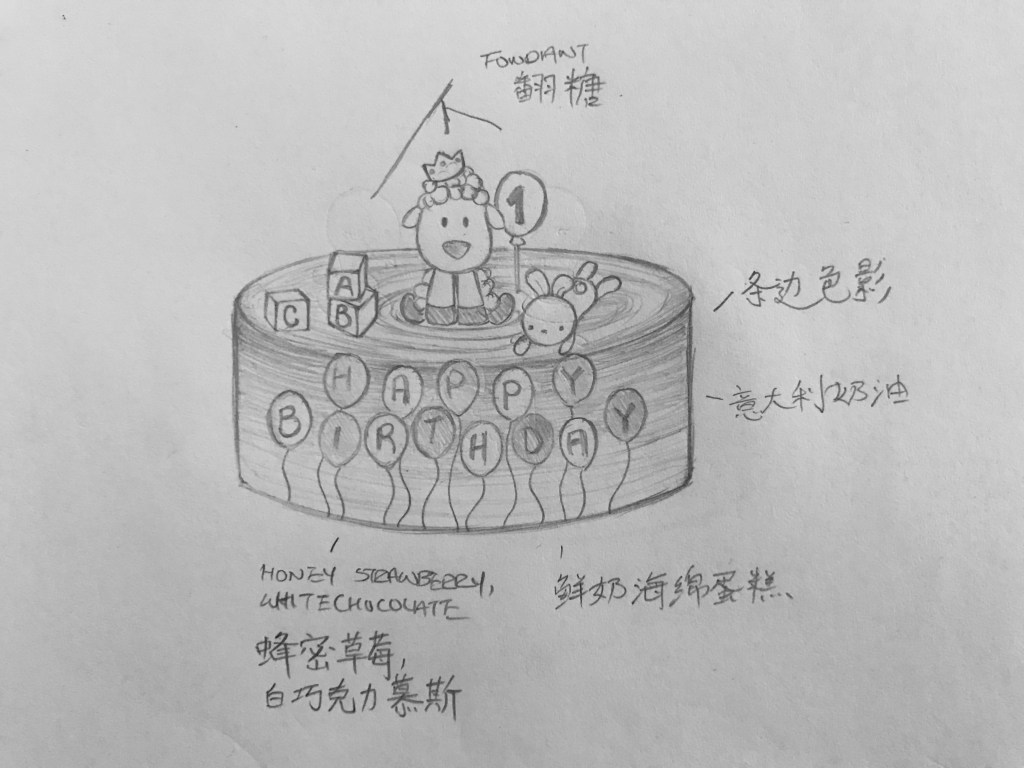 FONDANT
翻糖
1
A
C B
条边色影
HAPPY
BIRTHDAY
意大利奶油
HONEY STRAWBERRY,
WHITECHOCOLATE
鲜奶海绵蛋糕
蜂密草莓,
白巧克力慕斯